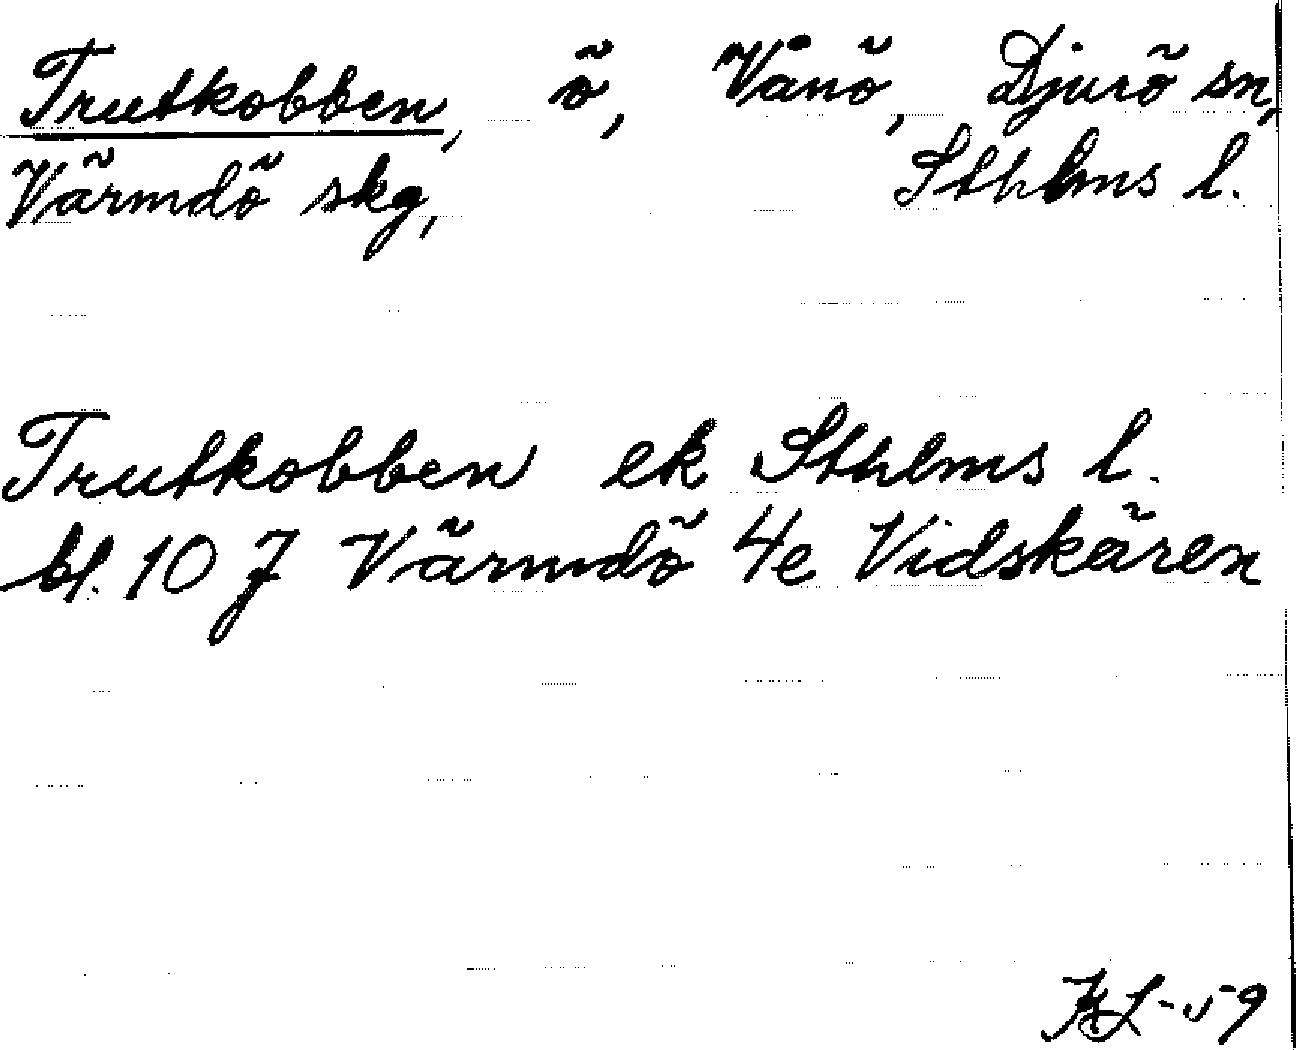 Trutkobben, ö, Vånö, Djurö sn,
Värmdö skg, Sthlms l.
Trutkobben ek Sthlms l.
bl. 107 Värmdö 4e Vidskären
KL-59